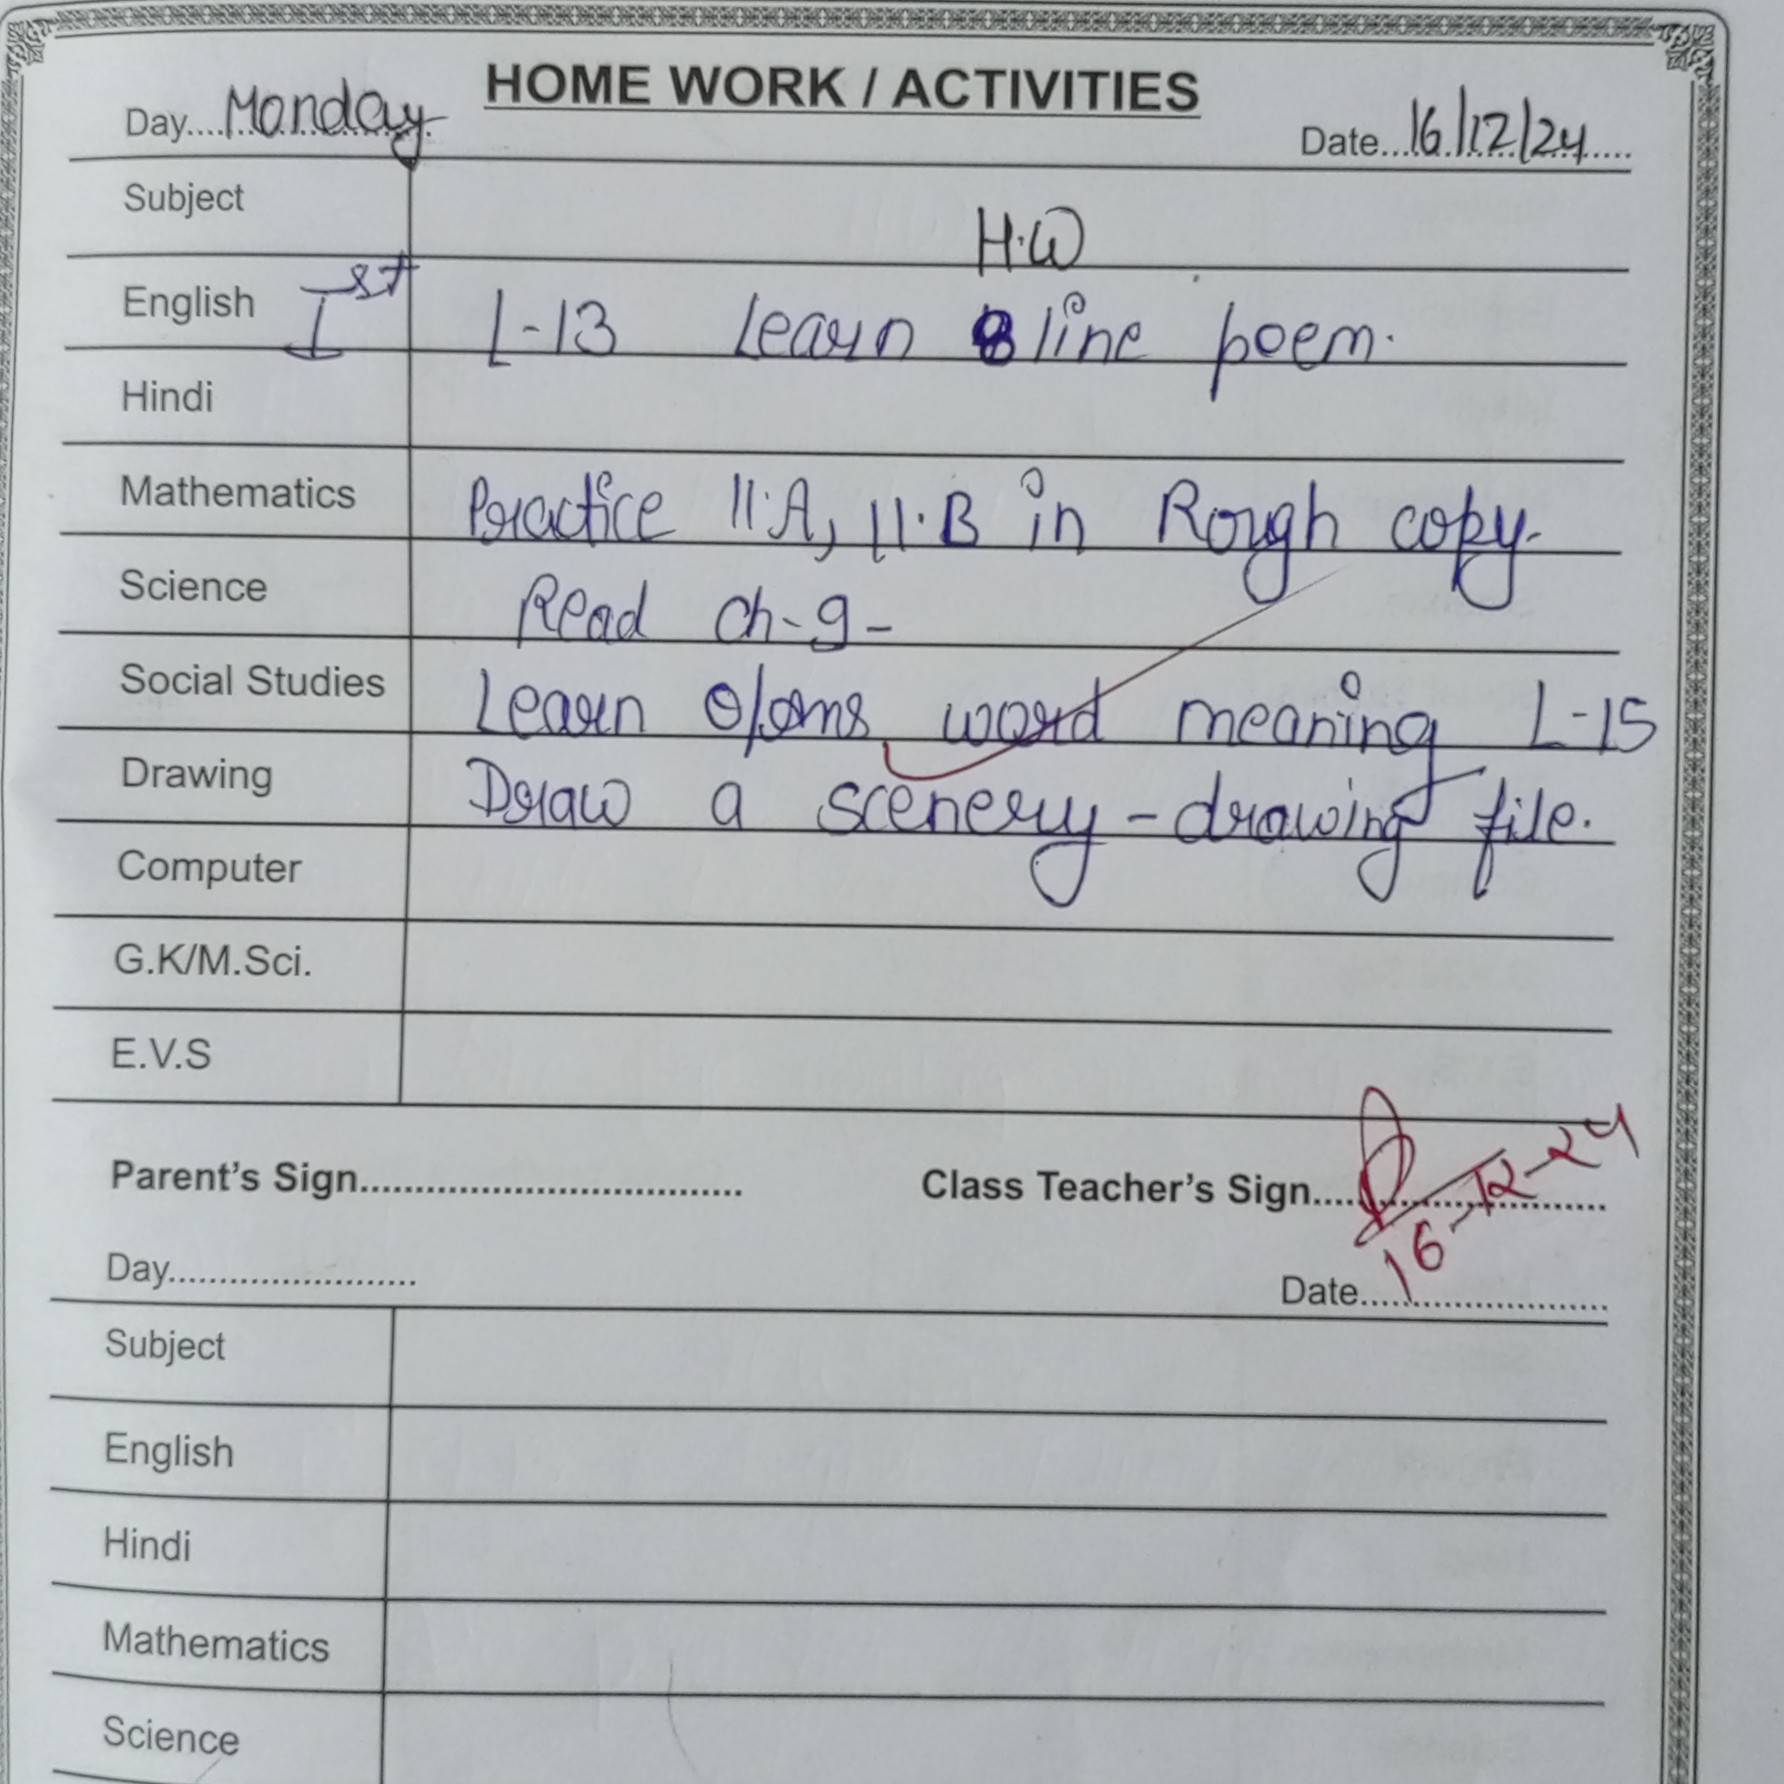 HOME WORK / ACTIVITIES
Day....Monday
Date...16/12/24
Subject H.W
English Ist L-13 Learn 8 line poem.
Hindi
Mathematics Practice 11.A, 11.B in Rough copy.
Science Read Ch-9-
Social Studies Learn word meaning L-15
Drawing Draw a scenery - drawing file.
Computer
G.K/M.Sci.
E.V.S
Parent's Sign.................................. Class Teacher's Sign..........................
16-12-24
Day........................ Date........................
Subject
English
Hindi
Mathematics
Science